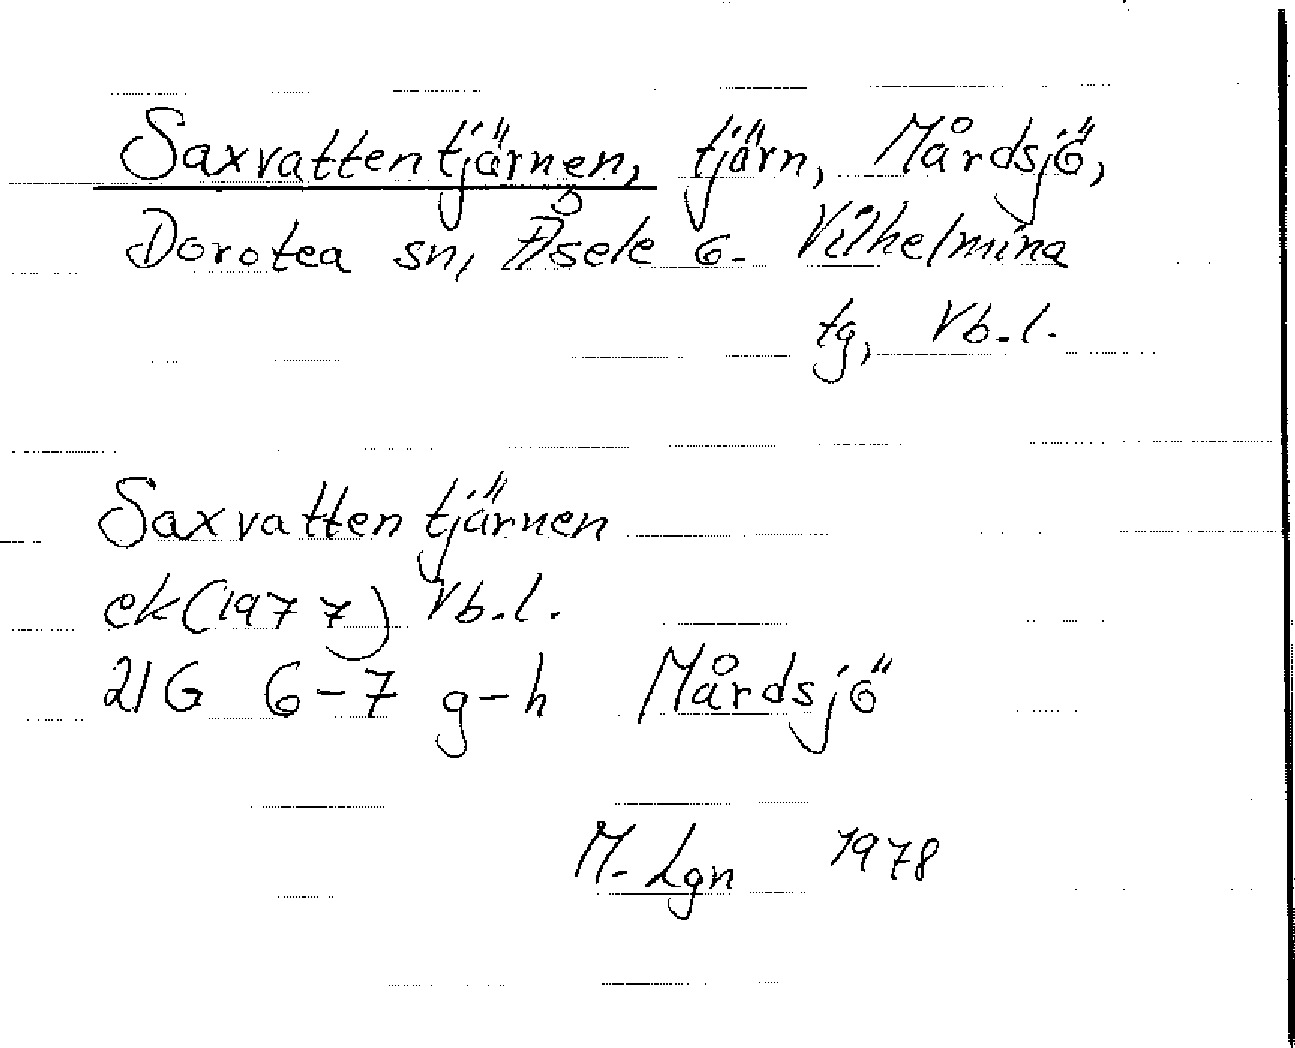 Saxvattentjärnen, tjärn, Mårdsjö,
Dorotea sn, Åsele o. Vilhelmina
tg, Vb.l.
Saxvattentjärnen
ek(1977) Vb.l.
21G 6-7 g-h Mårdsjö
M. Lgn 1978